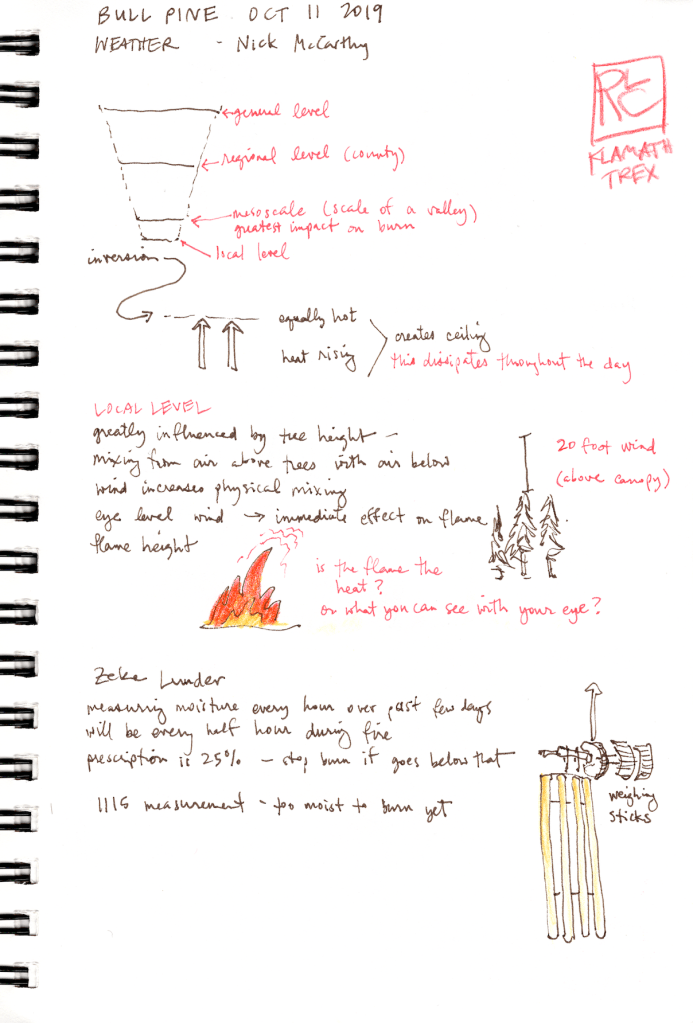 BULL PINE OCT 11 2019
WEATHER - Nick McCarthy
RLC
KLAMATH
TREX
general level
regional level (county)
mesoscale (scale of a valley)
greatest impact on burn
local level
inversion
equally hot
heat rising
creates ceiling
this dissipates throughout the day
LOCAL LEVEL
greatly influenced by tree height -
mixing from air above trees with air below
wind increases physical mixing
eye level wind → immediate effect on flame
flame height
20 foot wind
(above canopy)
is the flame the
heat?
or what you can see with your eye?
Zeke Lunder
measuring moisture every hour over past few days
will be every half hour during fire
prescription is 25% - stop burn if goes below that
1115 measurement - too moist to burn yet
weighing
sticks